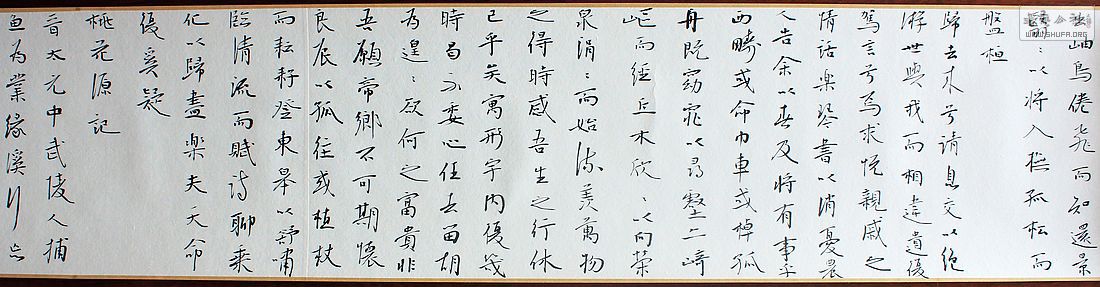 岫鳥倦飛而知還景
翳:以將入撫孤松而
盤桓
歸去來兮請息交以絕
游世與我而相違遺復
駕言兮焉求悅親戚之
情話樂琴書以消憂農
人告余以春及將有事乎
西疇或命巾車或棹孤
舟既窈窕以尋壑亦崎
嶇而經丘木欣:以向榮
泉涓:而始流羨萬物
之得時感吾生之行休
已乎矣寓形宇內復幾
時曷不委心任去留胡
為遑:欲何之富貴非
吾願帝鄉不可期懷
良辰以孤往或植杖
而耘耔登東皋以舒嘯
臨清流而賦詩聊乘
化以歸盡樂夫天命
復奚疑
桃花源記
晉太元中武陵人捕
魚為業緣溪行忘
WWW.SHUFA.ORG